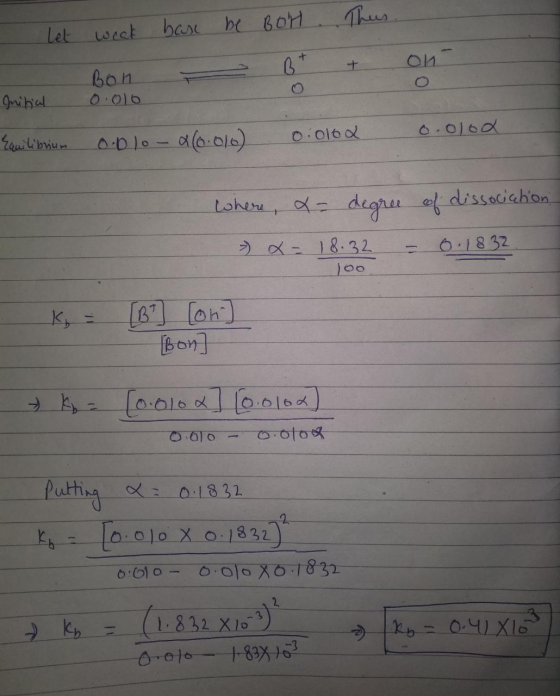 Let weak base be BOH. Thus
BOH ⇌ B⁺ + OH⁻
Initial 0.010 0 0
Equilibrium 0.010 - α(0.010) 0.010α 0.010α
where, α = degree of dissociation
⇒ α = 18.32/100 = 0.1832
K_b = [B⁺] [OH⁻] / [BOH]
→ K_b = [0.010 α] [0.010α] / 0.010 - 0.010α
Putting α = 0.1832
K_b = [0.010 × 0.1832]² / 0.010 - 0.010 × 0.1832
⇒ K_b = (1.832 × 10⁻³)² / 0.010 - 1.83 × 10⁻³ ⇒ K_b = 0.41 × 10⁻³